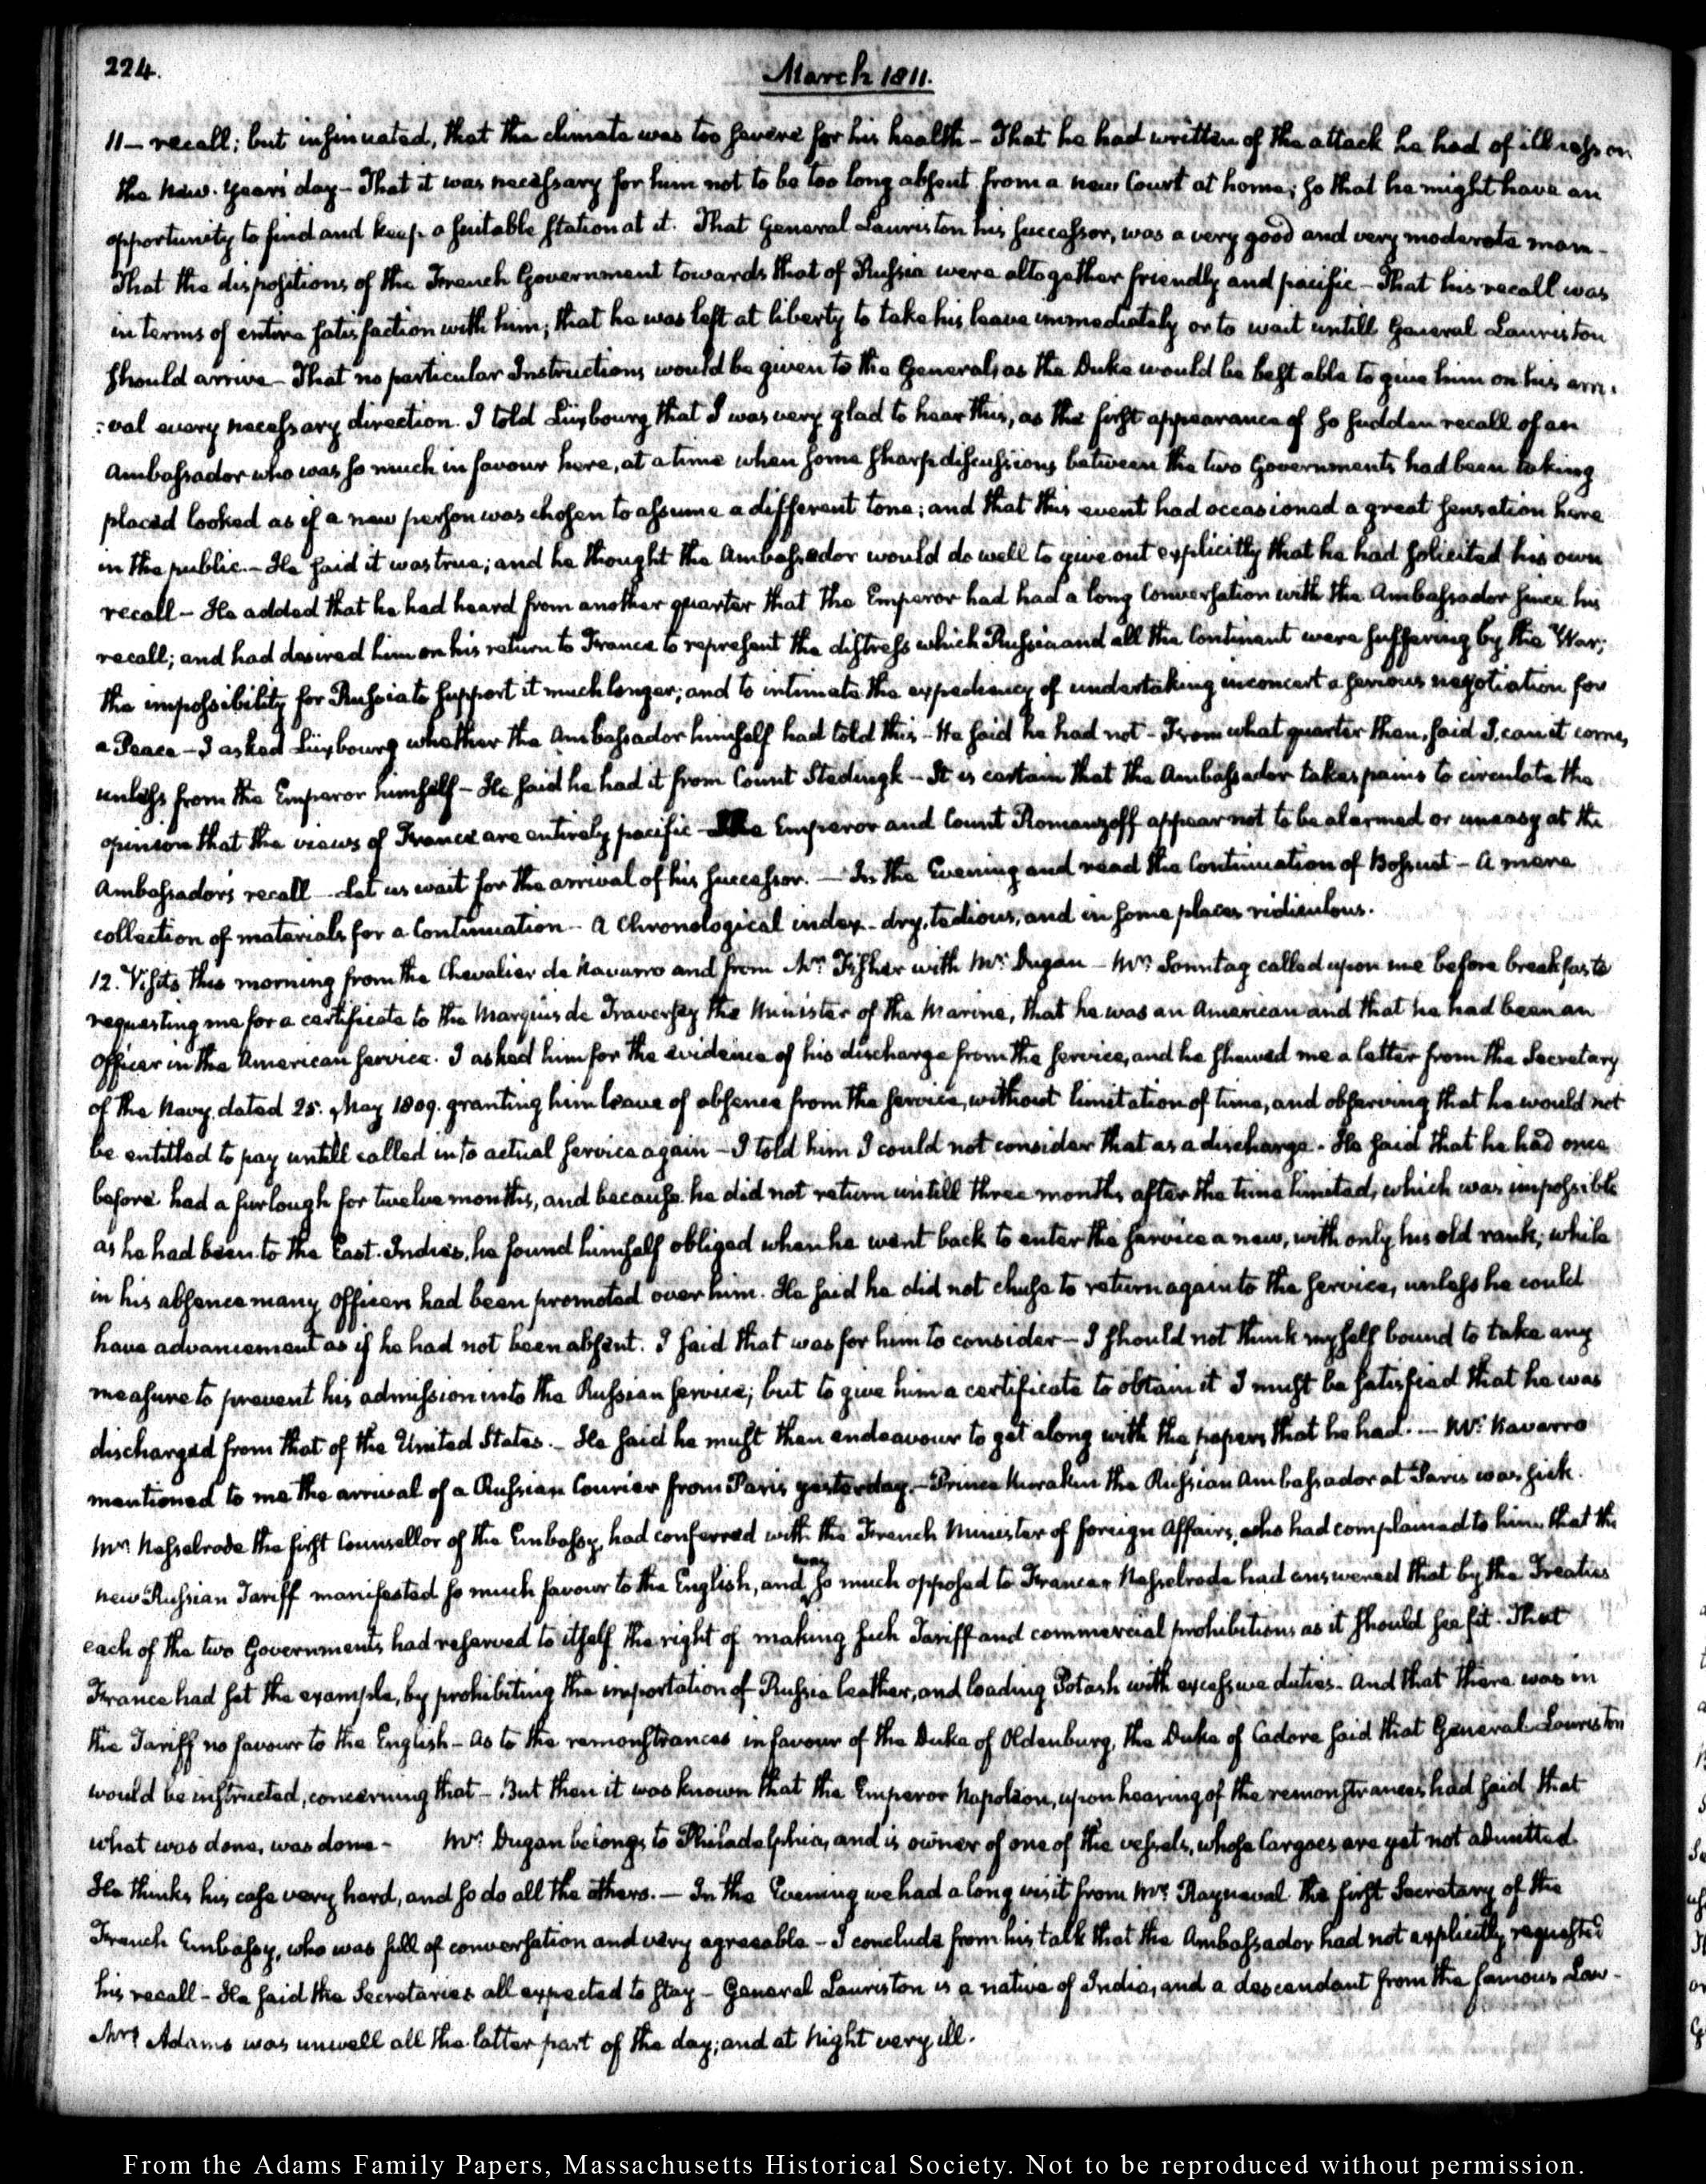 224.
March 1811.
11 — recall; but insinuated, that the climate was too severe for his health – That he had written of the attack he had of illness on
the New. Years' day – That it was necessary for him not to be too long absent from a new Court at home; so that he might have an
opportunity to find and keep a suitable station at it. That General Lauriston his successor, was a very good and very moderate man –
That the dispositions of the French Government towards that of Russia were altogether friendly and pacific – That his recall was
in terms of entire satisfaction with him; that he was left at liberty to take his leave immediately or to wait untill General Lauriston
should arrive – That no particular Instructions would be given to the General, as the Duke would be best able to give him on his arri-
:val every necessary direction. I told Luxbourg that I was very glad to hear this, as the first appearance of so sudden recall of an
Ambassador who was so much in favour here, at a time when some sharp discussions between the two Governments had been taking
placed looked as if a new person was chosen to assume a different tone; and that this event had occasioned a great sensation here
in the public. – He said it was true; and he thought the Ambassador would do well to give out explicitly that he had solicited his own
recall – He added that he had heard from another quarter that the Emperor had had a long Conversation with the Ambassador since his
recall; and had desired him on his return to France to represent the distress which Russia and all the Continent were suffering by the War;
the impossibility for Russia to support it much longer; and to intimate the expediency of undertaking in concert a serious negotiation for
a Peace – I asked Luxbourg whether the Ambassador himself had told this – He said he had not – From what quarter then, said I, can it come,
unless from the Emperor himself – He said he had it from Count Stedingk – It is certain that the Ambassador takes pains to circulate the
opinion that the views of France are entirely pacific – The Emperor and Count Romanzoff appear not to be alarmed or uneasy at the
Ambassador's recall – Let us wait for the arrival of his successor. — In the Evening and read the Continuation of Bossuet – A mere
collection of materials for a Continuation – A Chronological index – dry, tedious, and in some places ridiculous.
12. Visits this morning from the Chevalier de Navarro and from Mr. Fisher with Mr. Dugan – Mr. Sonntag called upon me before breakfast
requesting me for a certificate to the Marquis de Traversay the Minister of the Marine, that he was an American and that he had been an
Officer in the American service. I asked him for the evidence of his discharge from the service, and he shewed me a letter from the Secretary
of the Navy, dated 25. May 1809. granting him leave of absence from the service, without limitation of time, and observing that he would not
be entitled to pay untill called into actual service again – I told him I could not consider that as a discharge. He said that he had once
before had a furlough for twelve months, and because he did not return untill three months after the time limited, which was impossible
as he had been to the East-Indies, he found himself obliged when he went back to enter the service a new, with only his old rank; while
in his absence many Officers had been promoted over him. He said he did not chuse to return again to the service, unless he could
have advancement as if he had not been absent. I said that was for him to consider – I should not think myself bound to take any
measure to prevent his admission into the Russian service; but to give him a certificate to obtain it I must be satisfied that he was
discharged from that of the United States. – He said he must then endeavour to get along with the papers that he had. – Mr. Navarro
mentioned to me the arrival of a Russian Courier from Paris yesterday. – Prince Kurakin the Russian Ambassador at Paris was sick.
Mr. Nesselrode the first Counsellor of the Embassy, had conferred with the French Minister of foreign Affairs, who had complained to him that the
new Russian Tariff manifested so much favour to the English, and was so much opposed to France. Nesselrode had answered that by the Treaties
each of the two Governments had reserved to itself the right of making such Tariff and commercial prohibitions as it should see fit. That
France had set the example, by prohibiting the importation of Russia leather, and loading Potash with excessive duties. And that there was in
the Tariff no favour to the English – As to the remonstrances in favour of the Duke of Oldenburg, the Duke of Cadore said that General Lauriston
would be instructed, concerning that – But then it was known that the Emperor Napoleon, upon hearing of the remonstrances had said that
what was done, was done – Mr. Dugan belongs to Philadelphia, and is owner of one of the vessels, whose Cargoes are yet not admitted.
He thinks his case very hard, and so do all the others. — In the Evening we had a long visit from Mr. Rayneval the first Secretary of the
French Embassy, who was full of conversation and very agreeable – I conclude from his talk that the Ambassador had not explicitly requested
his recall – He said the Secretaries all expected to stay – General Lauriston is a native of India, and a descendant from the famous Law –
Mrs. Adams was unwell all the latter part of the day; and at Night very ill.
From the Adams Family Papers, Massachusetts Historical Society. Not to be reproduced without permission.